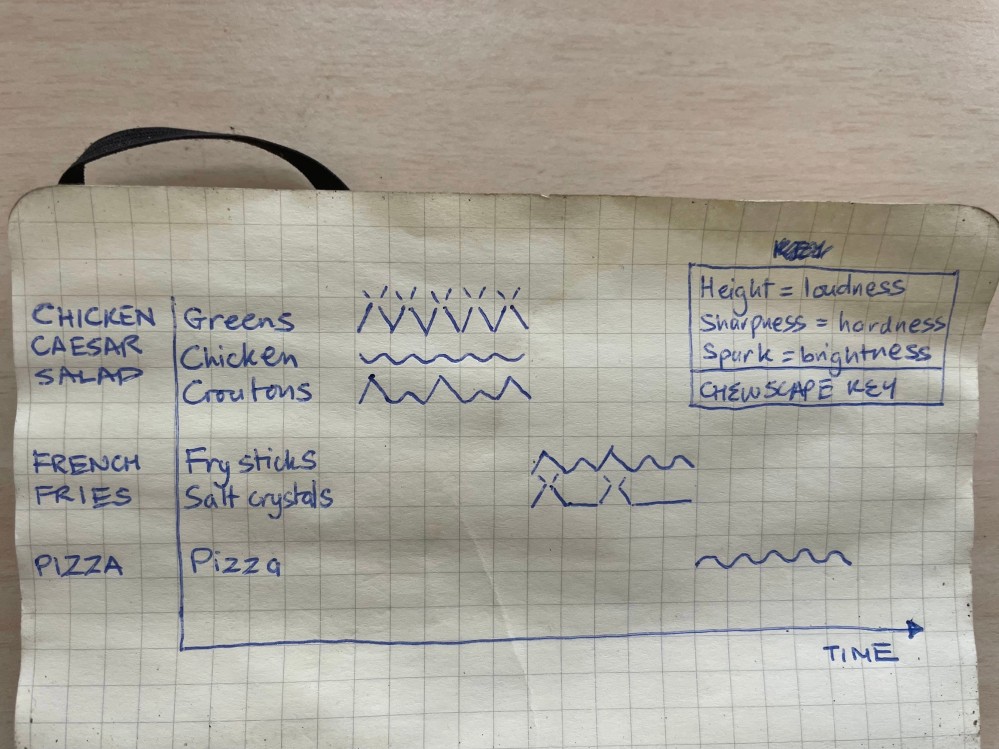 CHICKEN
CAESAR
SALAD
Greens
Chicken
Croutons
FRENCH
FRIES
Fry sticks
Salt crystals
PIZZA
Pizza
TIME
KEY
Height = loudness
Sharpness = hardness
Spark = brightness
CHEWSCAPE KEY